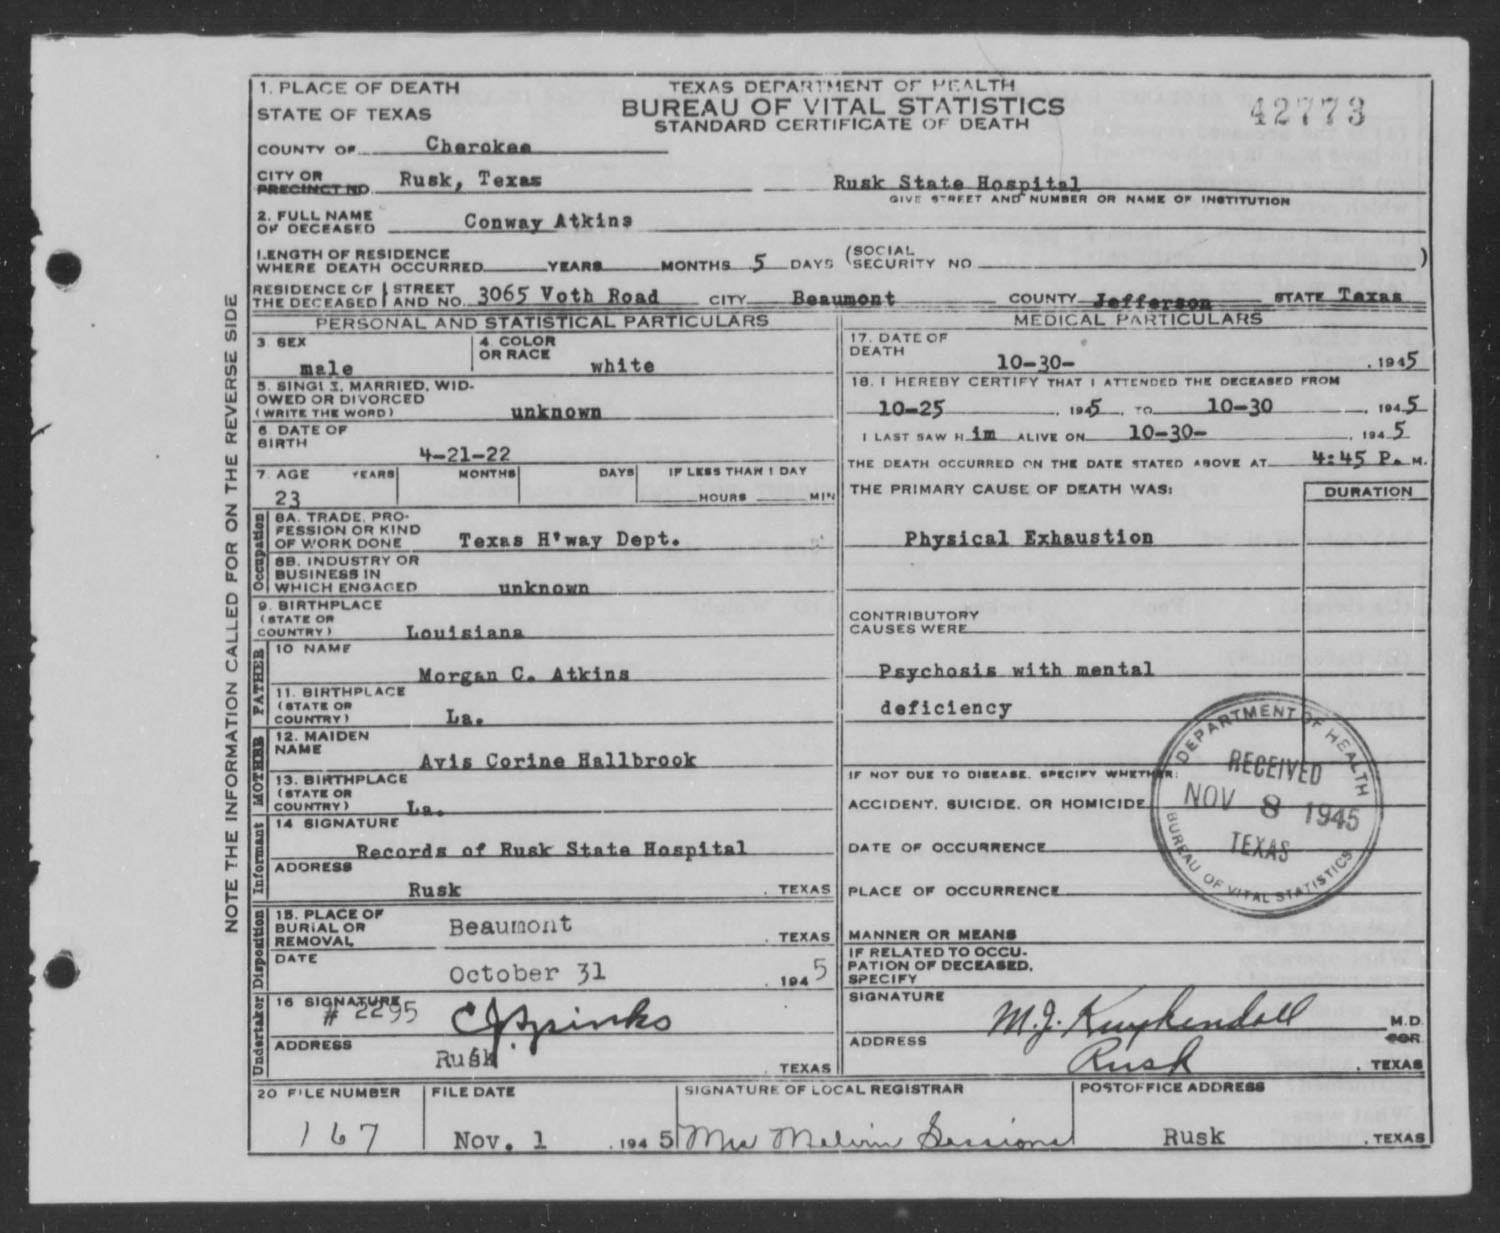 1. PLACE OF DEATH
STATE OF TEXAS
TEXAS DEPARTMENT OF HEALTH
BUREAU OF VITAL STATISTICS
STANDARD CERTIFICATE OF DEATH
42773
COUNTY OF Cherokee
CITY OR
PRECINCT NO. Rusk, Texas Rusk State Hospital
GIVE STREET AND NUMBER OR NAME OF INSTITUTION
2. FULL NAME
OF DECEASED Conway Atkins
LENGTH OF RESIDENCE
WHERE DEATH OCCURRED YEARS MONTHS 5 DAYS (SOCIAL
SECURITY NO. )
RESIDENCE OF THE DECEASED STREET AND NO. 3065 Voth Road CITY Beaumont COUNTY Jefferson STATE Texas
NOTE THE INFORMATION CALLED FOR ON THE REVERSE SIDE
PERSONAL AND STATISTICAL PARTICULARS
3. SEX
male
4. COLOR
OR RACE
white
5. SINGLE, MARRIED, WID-
OWED OR DIVORCED
(WRITE THE WORD) unknown
6. DATE OF
BIRTH
4-21-22
7. AGE YEARS MONTHS DAYS IF LESS THAN 1 DAY
23 HOURS MIN
Occupation
8A. TRADE, PRO-
FESSION OR KIND
OF WORK DONE Texas H'way Dept.
8B. INDUSTRY OR
BUSINESS IN
WHICH ENGAGED unknown
9. BIRTHPLACE
(STATE OR
COUNTRY) Louisiana
FATHER
10 NAME
Morgan C. Atkins
11. BIRTHPLACE
(STATE OR
COUNTRY) La.
MOTHER
12. MAIDEN
NAME
Avis Corine Hallbrook
13. BIRTHPLACE
(STATE OR
COUNTRY) La.
Informant
14 SIGNATURE
Records of Rusk State Hospital
ADDRESS
Rusk , TEXAS
Disposition
15. PLACE OF
BURIAL OR
REMOVAL Beaumont , TEXAS
DATE
October 31 , 1945
Undertaker
16 SIGNATURE
# 2295 C J Spinks
ADDRESS Rusk , TEXAS
MEDICAL PARTICULARS
17. DATE OF
DEATH 10-30- , 1945
18. I HEREBY CERTIFY THAT I ATTENDED THE DECEASED FROM
10-25 , 1945, TO 10-30 , 1945
I LAST SAW H im ALIVE ON 10-30- , 1945
THE DEATH OCCURRED ON THE DATE STATED ABOVE AT 4:45 P. M.
THE PRIMARY CAUSE OF DEATH WAS: DURATION
Physical Exhaustion
CONTRIBUTORY
CAUSES WERE
Psychosis with mental
deficiency
IF NOT DUE TO DISEASE, SPECIFY WHETHER:
ACCIDENT, SUICIDE, OR HOMICIDE
DATE OF OCCURRENCE
PLACE OF OCCURRENCE
MANNER OR MEANS
IF RELATED TO OCCU-
PATION OF DECEASED,
SPECIFY
DEPARTMENT OF HEALTH
RECEIVED
NOV 8 1945
TEXAS
BUREAU OF VITAL STATISTICS
SIGNATURE
M. J. Kuykendall M.D.
ADDRESS
Rusk , TEXAS
20 FILE NUMBER FILE DATE SIGNATURE OF LOCAL REGISTRAR POSTOFFICE ADDRESS
167 Nov. 1 , 1945 Mrs Melvin Sessions Rusk , TEXAS